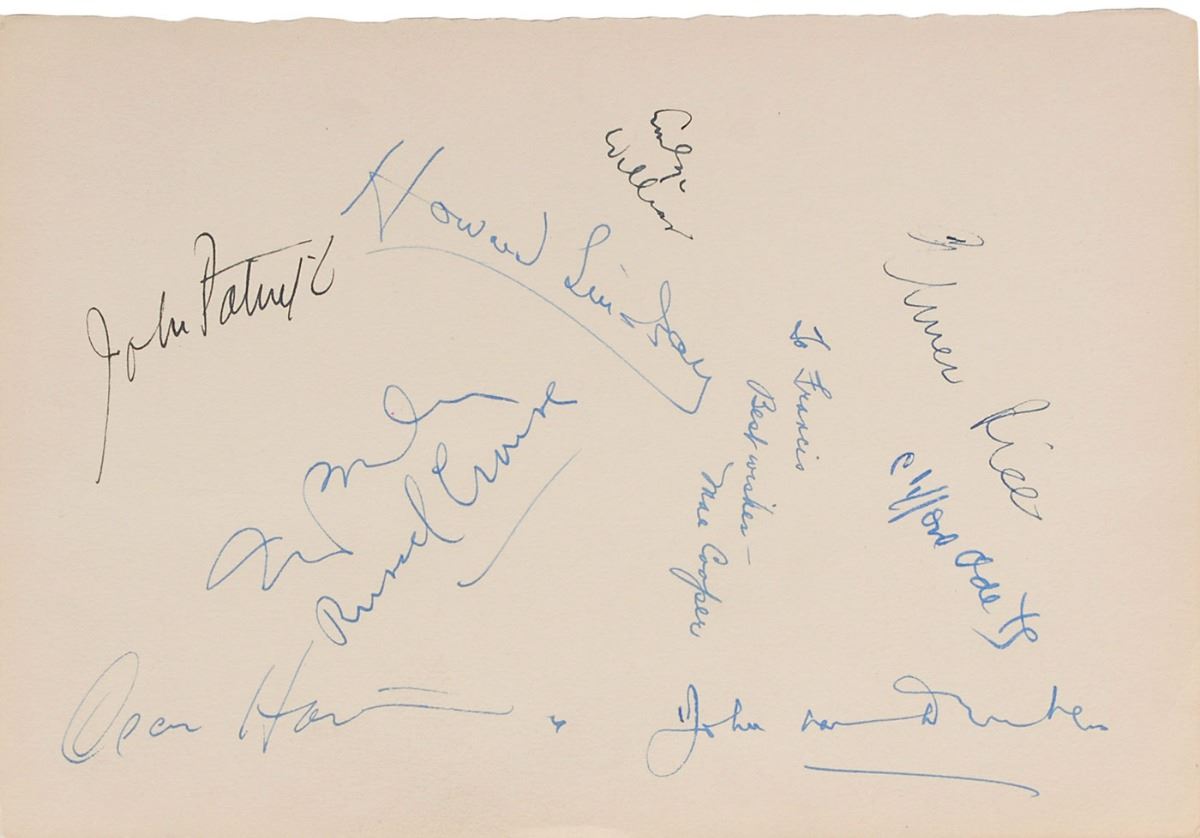 Emlyn
Williams
Howard Lindsay
John Patrick
Elmer Rice
To Francis
Best wishes –
Mae Cooper
Clifford Odets
Russel Crouse
John van Druten